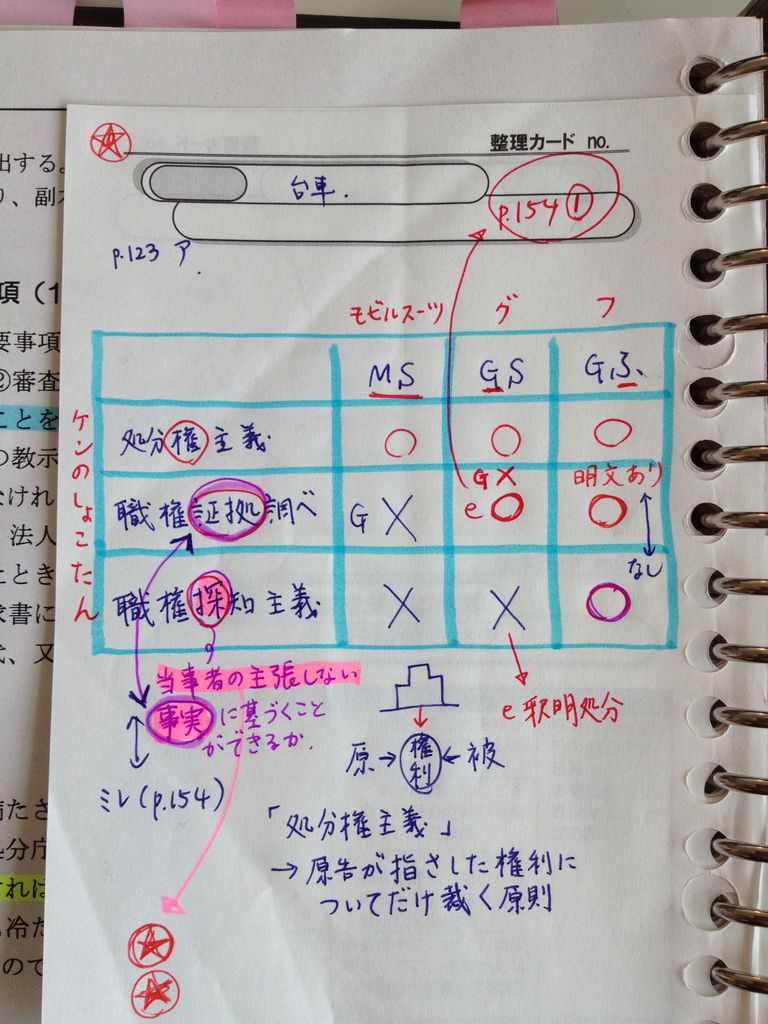 整理カード no.
台車.
p.154 ①
p.123 ア.
モビルスーツ グ フ
MS GS Gふ.
処分権主義 ○ ○ ○
(G× 明文あり
職権証拠調べ G × e○ ○
なし
職権探知主義 × × ○
ケンのしょこたん
当事者の主張しない
事実に基づくこと
ができるか.
e 釈明処分
原→権利←被
ミレ(p.154)
「処分権主義」
→原告が指さした権利に
ついてだけ裁く原則
出する。
り、副本
項(1
要事項
②審査
ことを
の教示
なけれ
法人
ことき
求書に
た、又
満たさ
処分庁
すれは
も冷た
ので